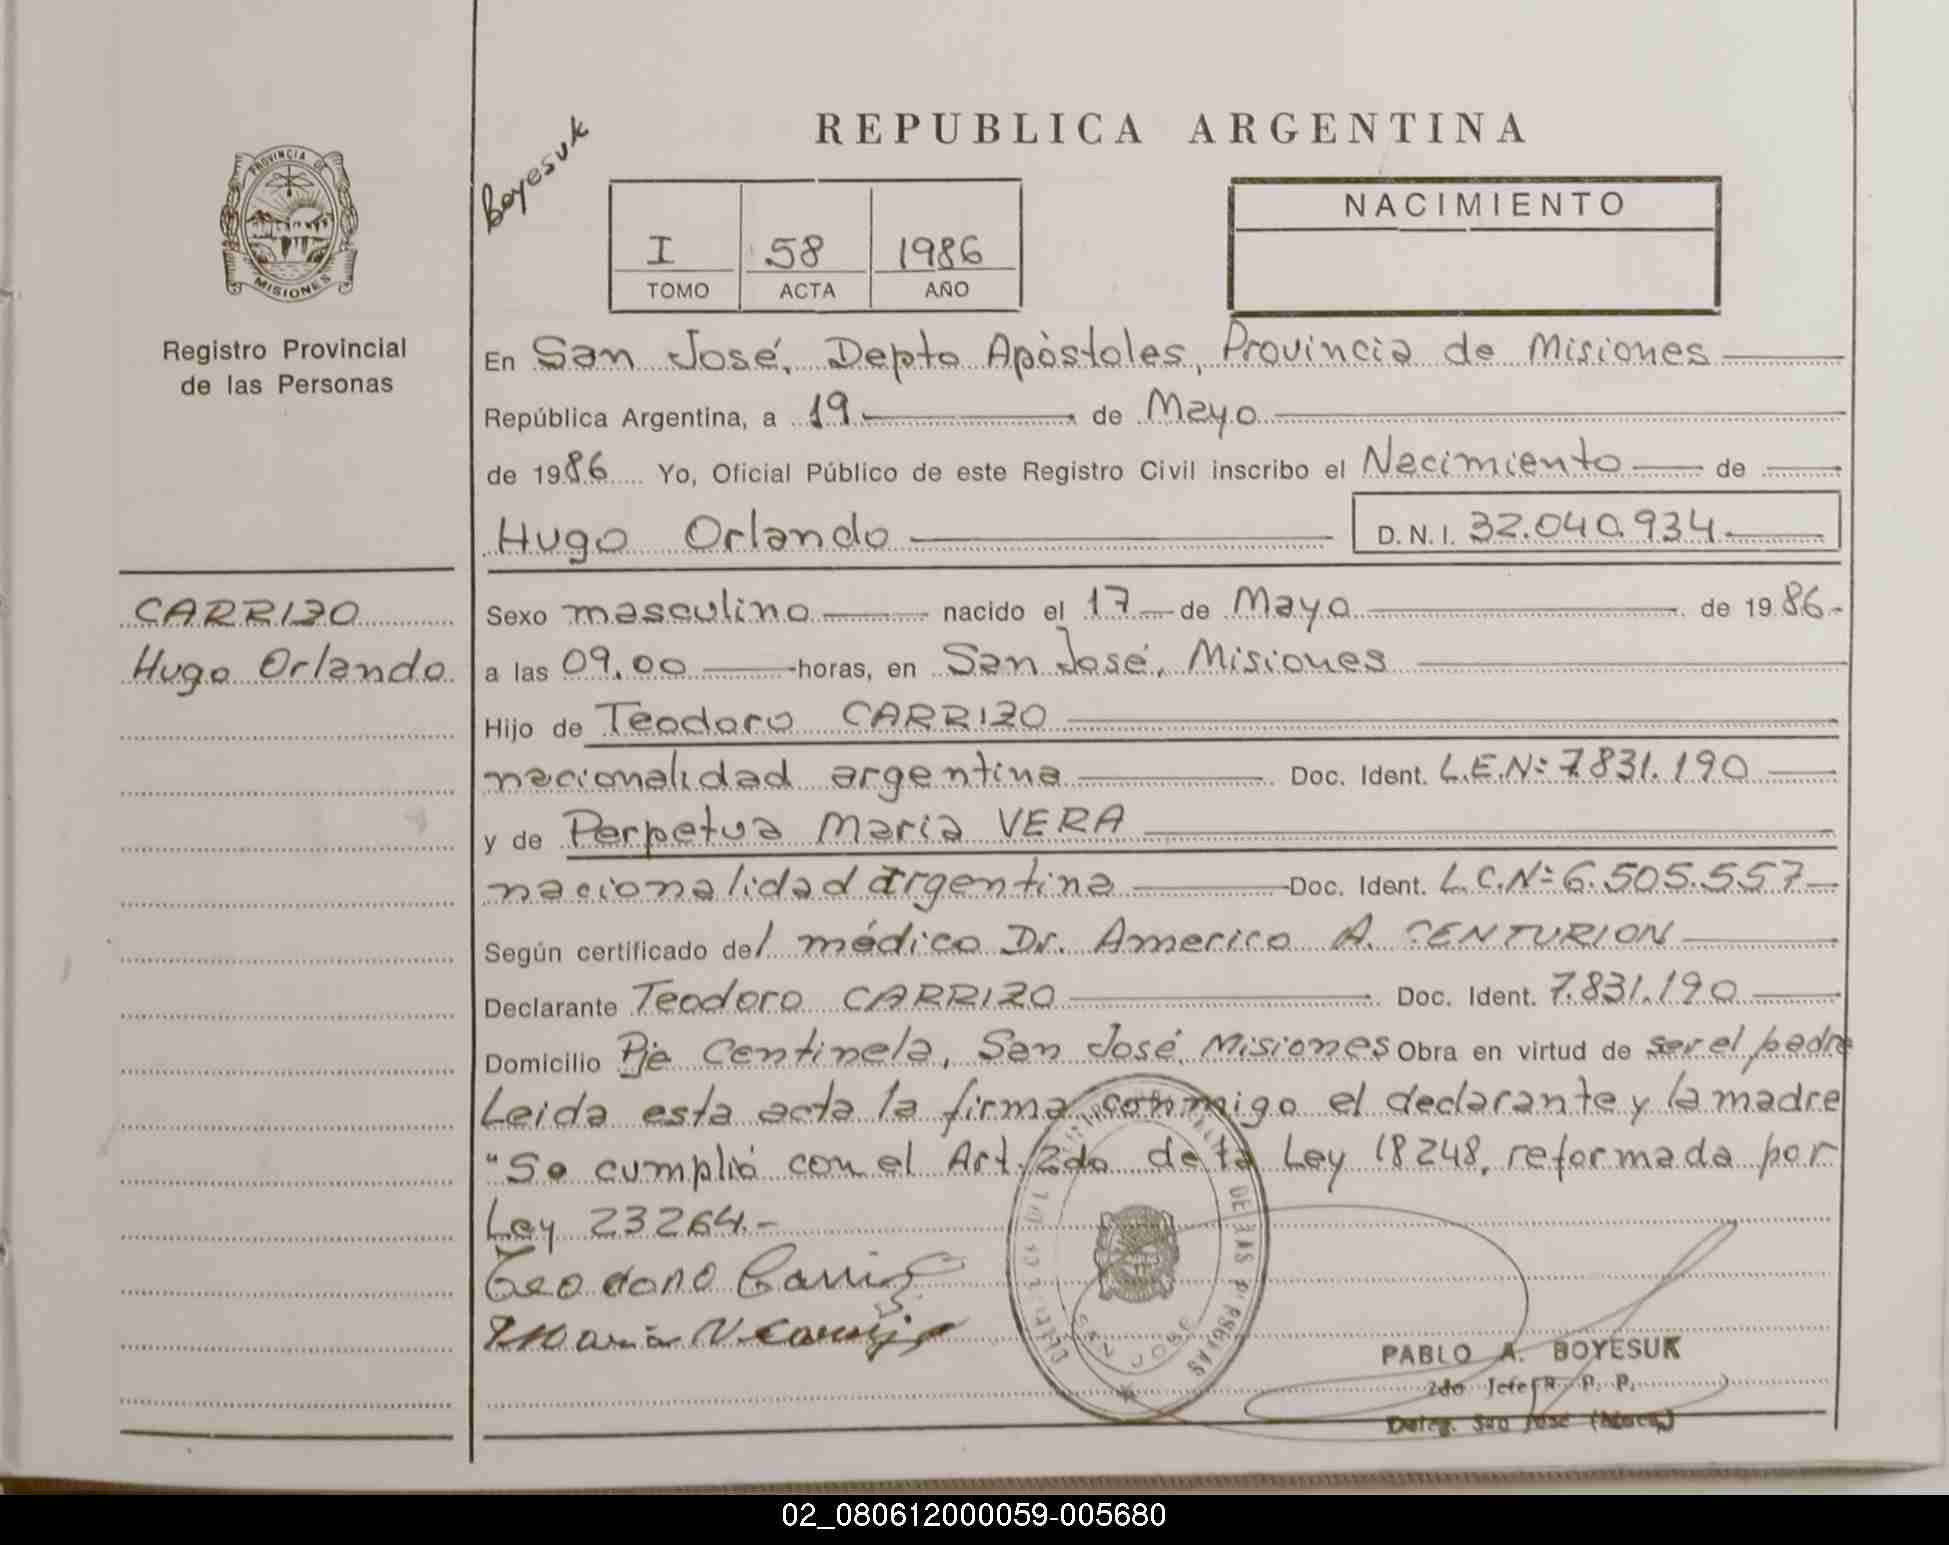 REPUBLICA ARGENTINA
Boyesuk
PROVINCIA DE
MISIONES
I 58 1986
TOMO ACTA AÑO
NACIMIENTO
Registro Provincial
de las Personas
En San José, Depto Apòstoles, Provincia de Misiones
República Argentina, a 19 de Mayo
de 1986 Yo, Oficial Público de este Registro Civil inscribo el Nacimiento de
Hugo Orlando D.N.I. 32.040.934
CARRIZO
Hugo Orlando
Sexo masculino nacido el 17 de Mayo de 1986-
a las 09.00 horas, en San José, Misiones
Hijo de Teodoro CARRIZO
nacionalidad argentina Doc. Ident. L.E.Nº 7.831.190
y de Perpetua Maria VERA
nacionalidad argentina Doc. Ident. L.C.Nº 6.505.557
Según certificado del médico Dr. Americo A. CENTURION
Declarante Teodoro CARRIZO Doc. Ident. 7.831.190
Domicilio Pje Centinela, San José, Misiones Obra en virtud de ser el padre
Leida esta acta la firma conmigo el declarante y la madre
"Se cumplió con el Art. 2do de la Ley 18248, reformada por
Ley 23264.-
Teodoro Carrizo
Maria V. Carrizo
DE LAS PERSONAS
SAN JOSE
PABLO A. BOYESUK
2do Jefe R. P. P.
Deleg. San José (Mnes.)
02_080612000059-005680